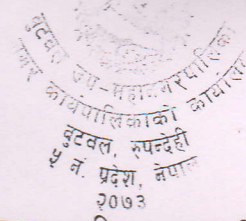 बुटवल उप-महानगरपालिका
नगर कार्यपालिकाको कार्यालय
बुटवल, रुपन्देही
५ नं. प्रदेश, नेपाल
२०७३